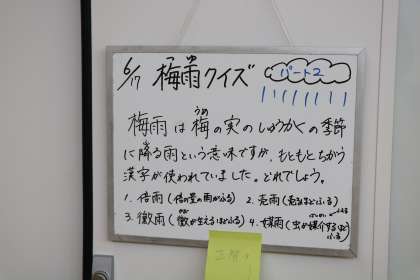 6/17 梅雨クイズ
つゆ
パート2
梅雨は梅の実のしゅうかくの季節
うめ
に降る雨という意味ですが、もともとちがう
漢字が使われていました。どれでしょう。
1. 倍雨(倍の量の雨がふる) 2. 売雨(売るほどふる)
3. 黴雨(黴が生えるほどふる) 4. 媒雨(虫が媒介するほど
かび
ばいかい
ふる)
正解は